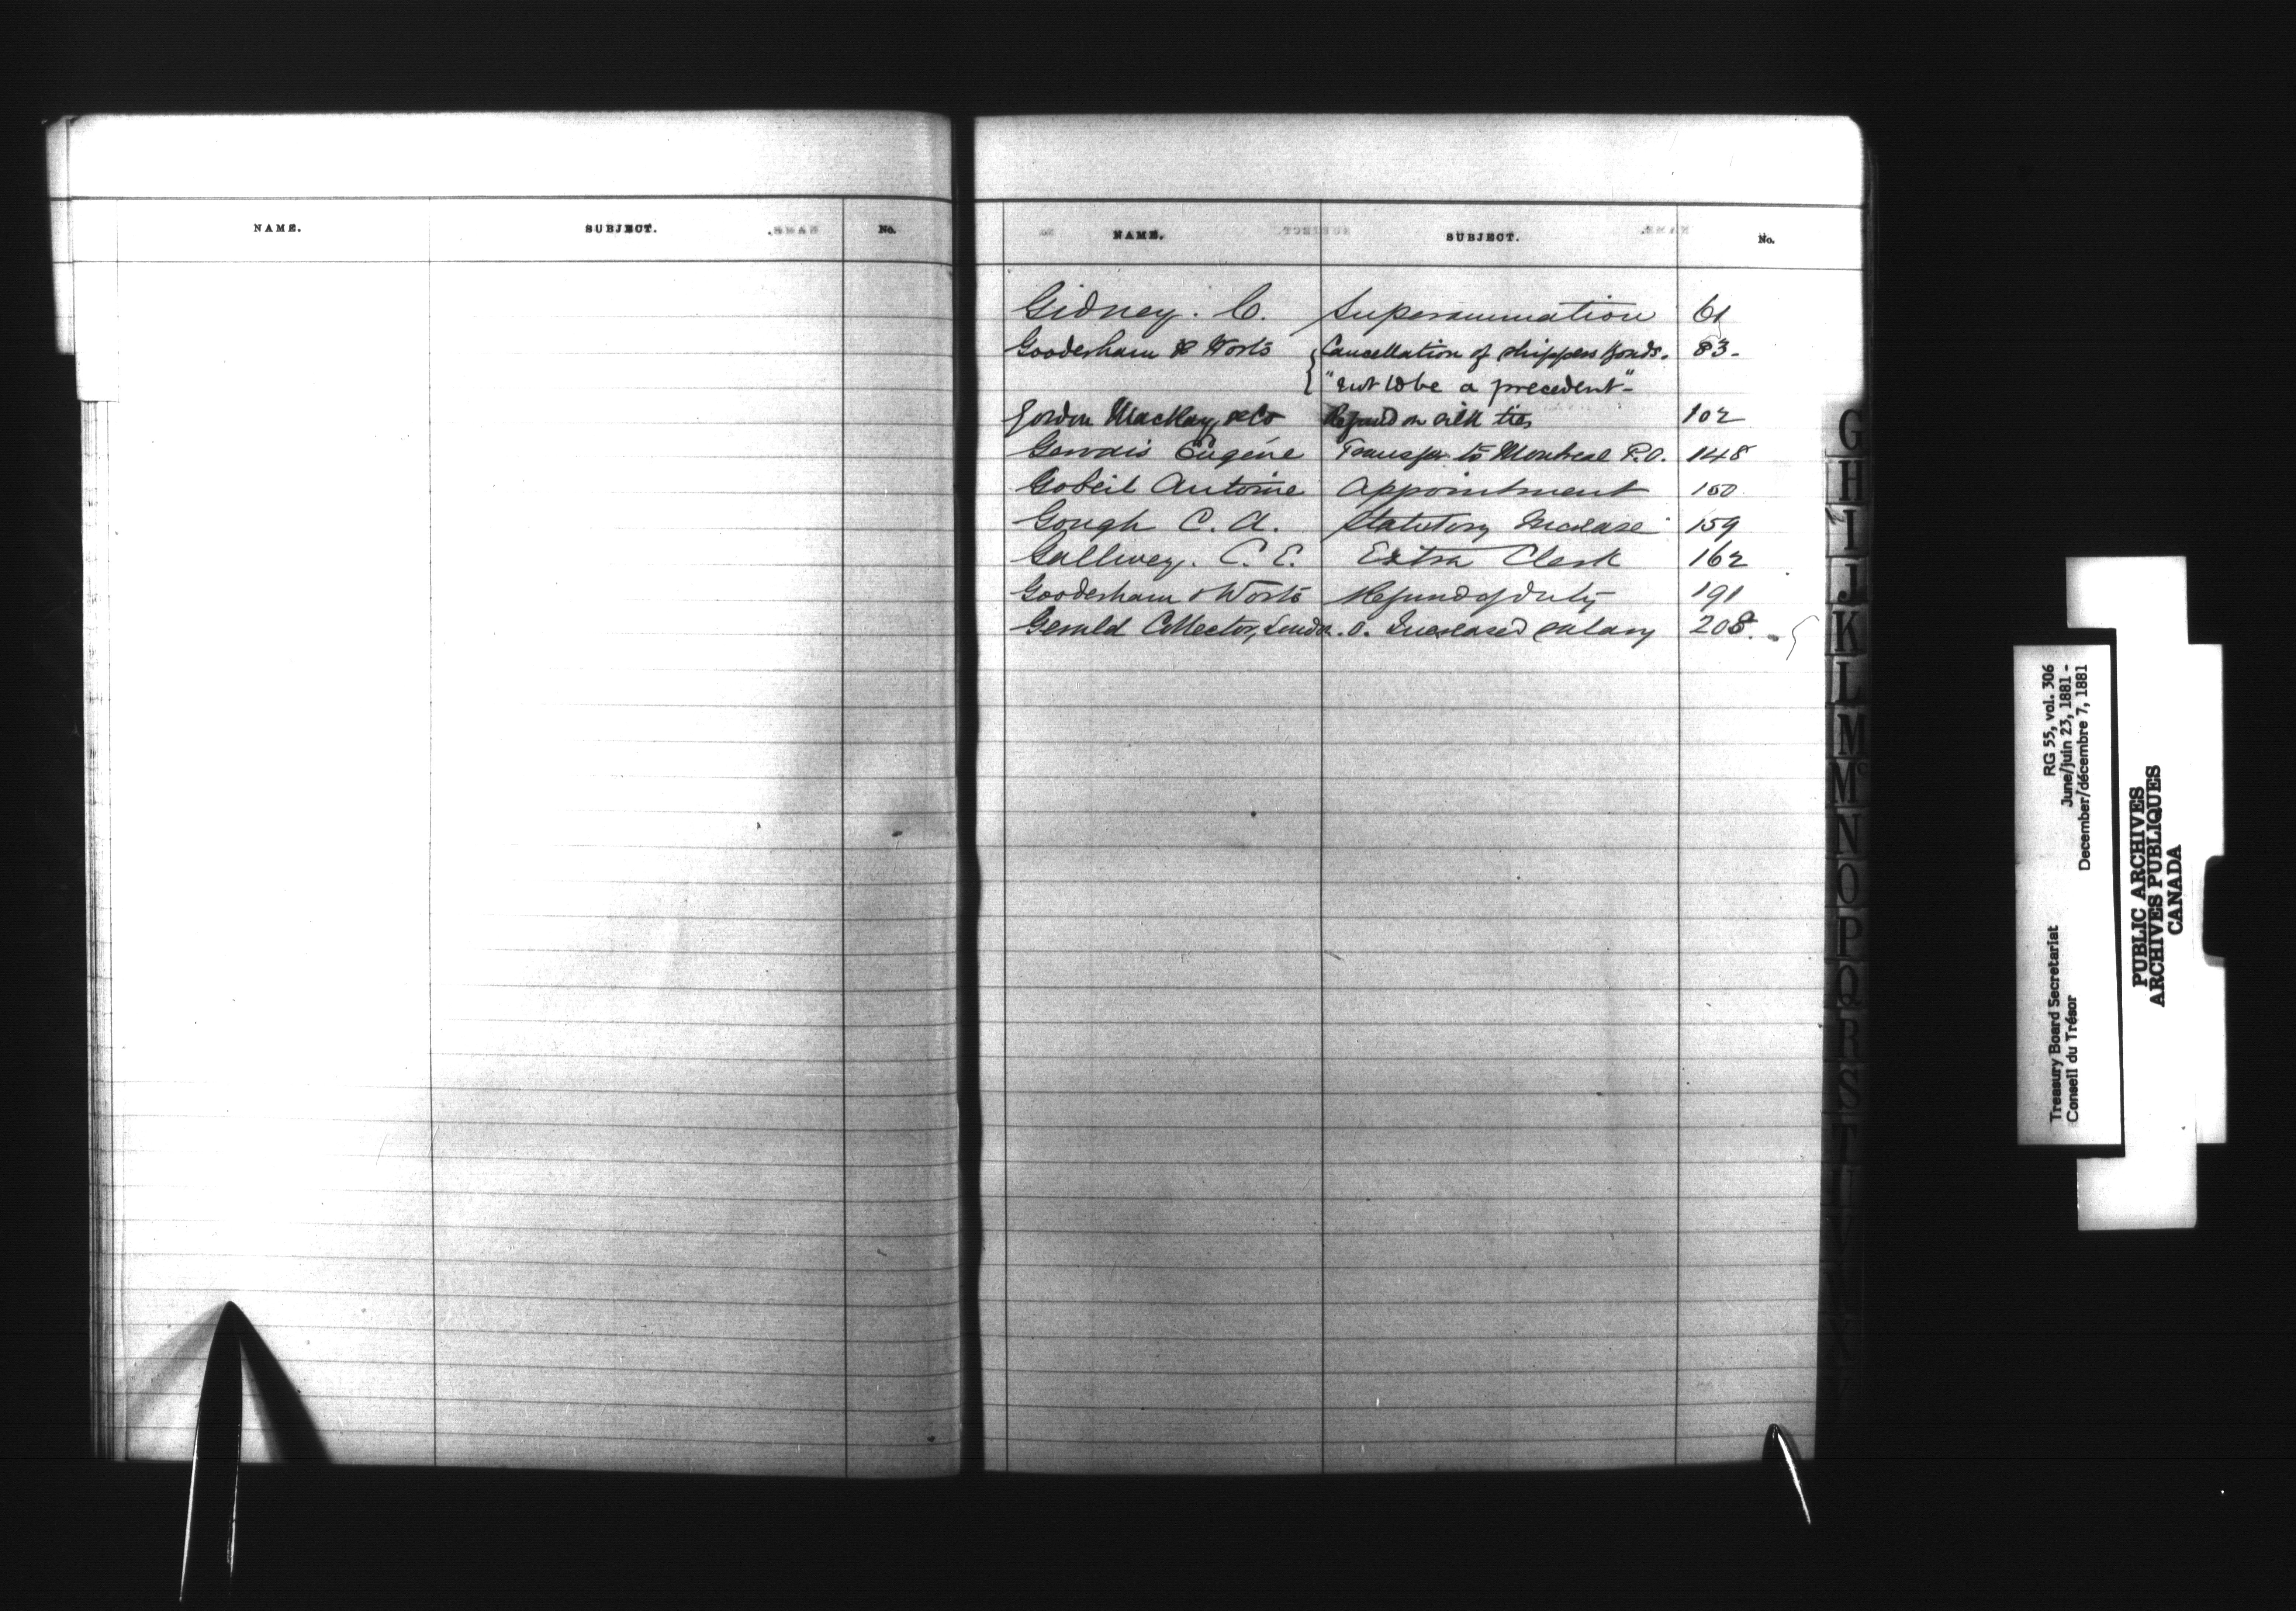 NAME. SUBJECT. No.
NAME. SUBJECT. No.
Gidney. C. Superannuation 61
Gooderham & Worts Cancellation of shippers bonds. 83-
"not to be a precedent"-
Gordon MacKay & Co Refund on silk ties 102
Gervais Eugène Transfer to Montreal P.O. 148
Gobeil Antoine Appointment 150
Gough C. A. Statutory Increase 159
Gallwey. C. E. Extra Clerk 162
Gooderham & Worts Refund of duty 191
Gerald Collector, London. O. Increased salary 208.
G
H
I
J
K
L
M
Mc
N
O
P
Q
R
S
T
U
V
W
X
Treasury Board Secretariat RG 55, vol. 306
Conseil du Trésor June/juin 23, 1881 -
December/décembre 7, 1881
PUBLIC ARCHIVES
ARCHIVES PUBLIQUES
CANADA